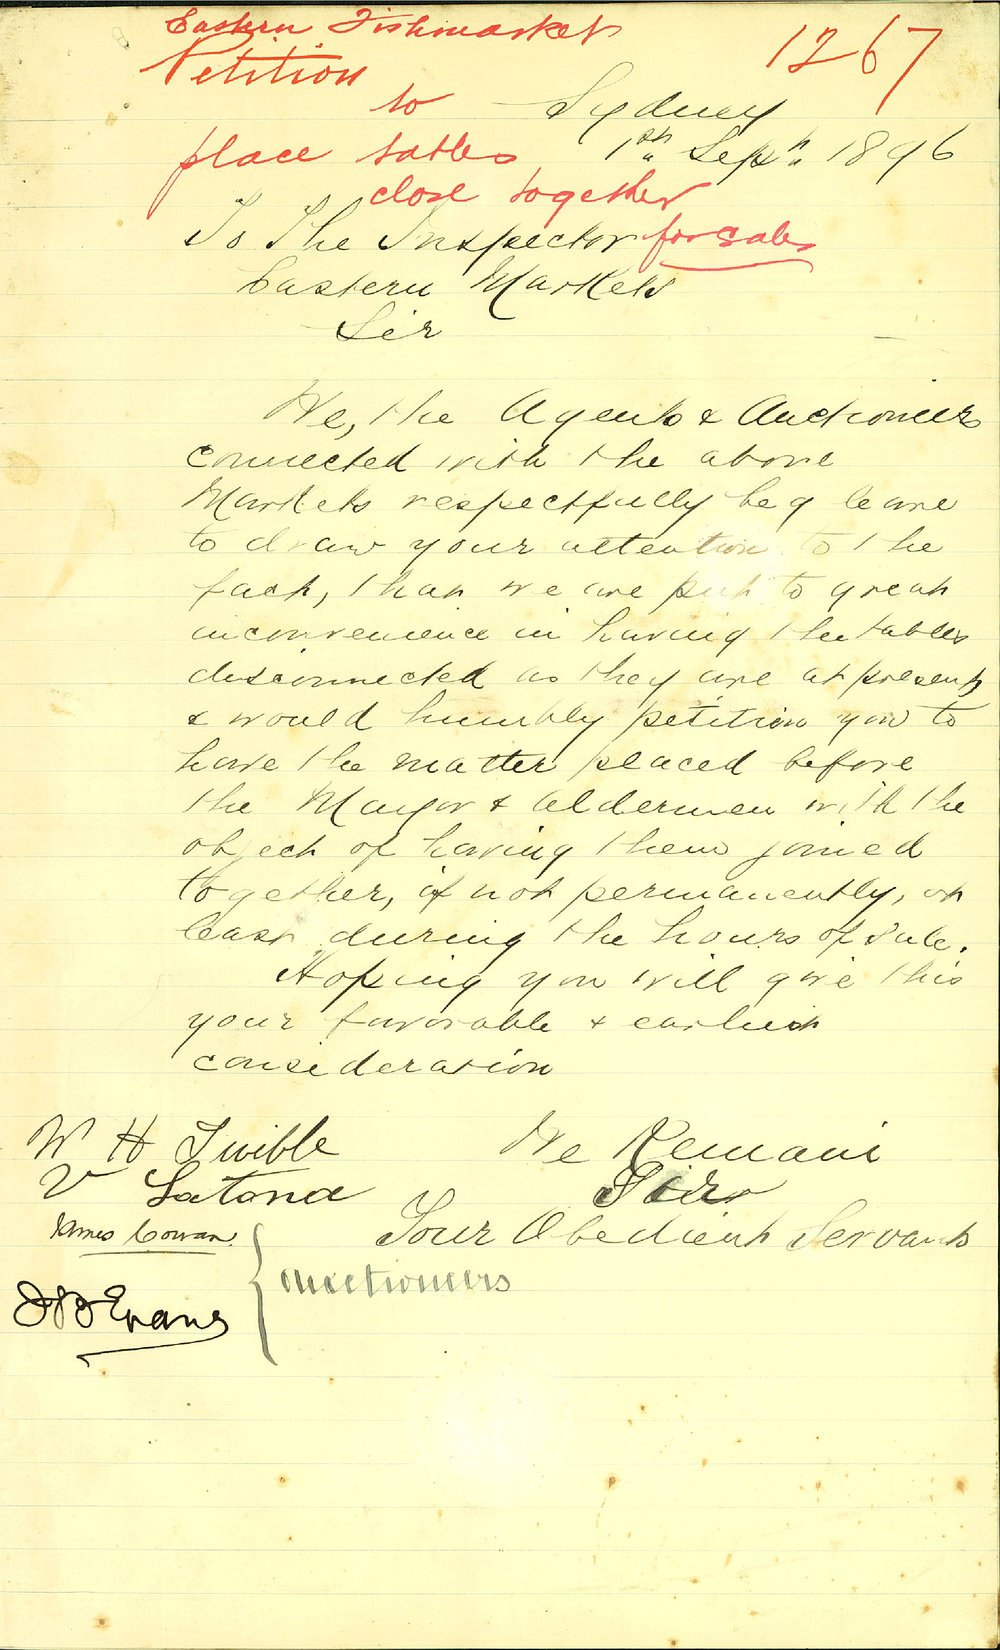 Eastern Fishmarket
Petition
1267
to
Sydney
place tables
1st Sept. 1896
close together
To The Inspector for sales
Eastern Markets
Sir
We, the Agents & Auctioneers
connected with the above
Markets respectfully beg leave
to draw your attention to the
fact, that we are put to great
inconvenience in having the tables
disconnected as they are at present
& would humbly petition you to
have the matter placed before
the Mayor & aldermen with the
object of having them joined
together, if not permanently, at
least during the hours of sale.
Hoping you will give this
your favorable & earliest
consideration
We Remain
Sirs
Your Obedient Servants
W H Twible
V Latona
James Cowan
J B Evans
auctioneers